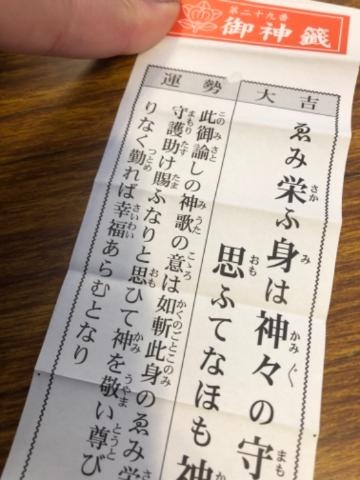 第二十九番
御神籤
大吉
ゑみ栄ふ身は神々の守
思ふてなほも神
運勢
此御諭しの神歌の意は如斬此身のゑみ栄
守護助け賜ふなりと思ひて神を敬い尊び
りなく勤れば幸福あらむとなり